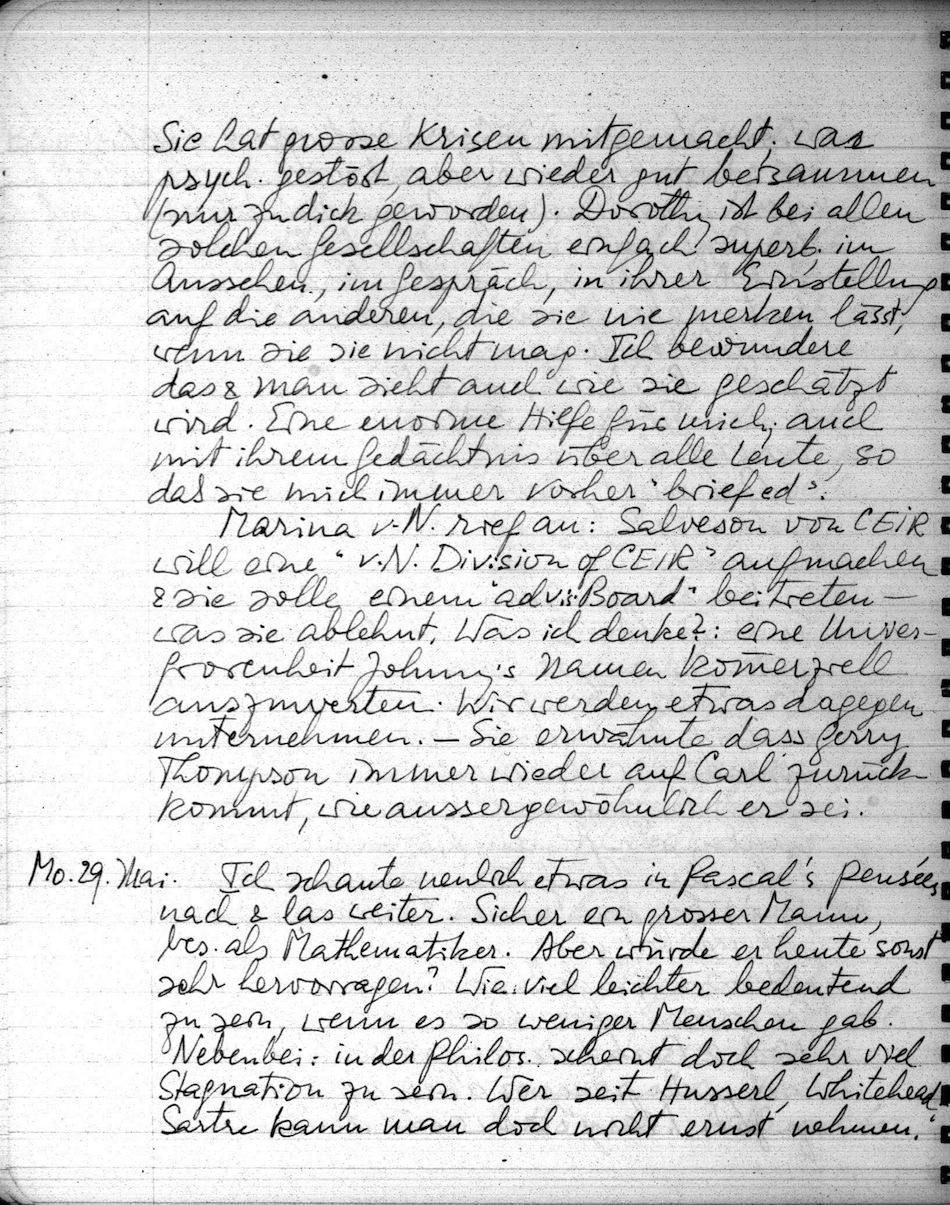 Sie hat grosse Krisen mitgemacht, war
psych. gestört, aber wieder gut beisammen
(nur zu dick geworden). Dorothy ist bei allen
solchen Gesellschaften einfach superb, im
Aussehen, im Gespräch, in ihrer Einstellung
auf die anderen, die sie nie merken lässt,
wenn sie sie nicht mag. Ich bewundere
das & man sieht auch wie sie geschätzt
wird. Eine enorme Hilfe für mich, auch
mit ihrem Gedächtnis über alle Leute, so
daß sie mich immer vorher "briefed".
Marina v.N. rief an: Salveson von CEIR
will eine "v.N. Division of CEIR" aufmachen
& sie solle einem "advis. Board" beitreten –
was sie ablehnt. Was ich denke?: eine Unver-
frorenheit Johnny's Namen kom̄erziell
auszuwerten. Wir werden etwas dagegen
unternehmen. – Sie erwähnte dass Gerry
Thompson immer wieder auf Carl zurück-
kommt, wie aussergewöhnlich er sei.
Mo. 29. Mai. Ich schaute neulich etwas in Pascal's Pensées
nach & las weiter. Sicher ein grosser Mann,
bes. als Mathematiker. Aber würde er heute sonst
sehr hervorragen? Wie viel leichter bedeutend
zu sein, wenn es so weniger Menschen gab.
Nebenbei: in der Philos. scheint doch sehr viel
Stagnation zu sein. Wer seit Husserl, Whitehead
Sartre kann man doch nicht ernst nehmen.